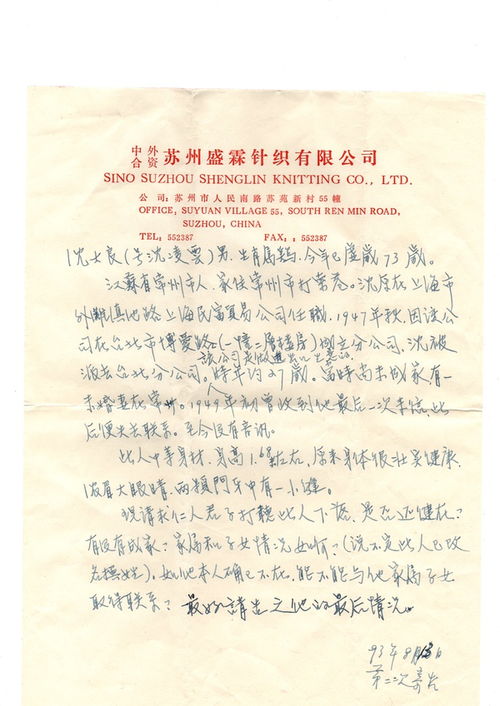 中外合资 苏州盛霖针织有限公司
SINO SUZHOU SHENGLIN KNITTING CO., LTD.
公司：苏州市人民南路苏苑新村55幢
OFFICE, SUYUAN VILLAGE 55, SOUTH REN MIN ROAD,
SUZHOU, CHINA
TEL: 552387 FAX, : 552387
沈士良(号沈凌雲)男，生肖属鸡，今年已虚歲73歲。
江蘇省常州市人，家住常州市打索巷。沈原在上海市
外滩滇池路上海民富貿易公司任職，1947年秋，因該公
司在台北市博爱路(一幢二層楼房)成立分公司，沈被
該公司是做進出口生意的
派去台北分公司。時年约27歲。當時尚未成家，有一
未婚妻在常州。1949年初曾收到他最后一次来信，此
后便失去联系。至今没有音讯。
此人中等身材，身高1.68左右，原来身体很壮实健康，
浓眉大眼睛，两顆門牙中有一小缝。
现请求仁人君子打聽此人下落，是否还健在？
有没有成家？家属和子女情况如何？(说不定此人已改
名换姓)。如他本人确已不在，能不能与他家属子女
取得联系？最好請告之他的最后情况。
93年8月
第二次寄出